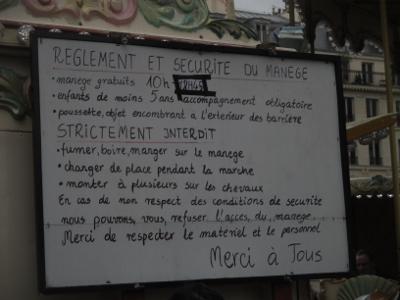 REGLEMENT ET SECURITE DU MANEGE
• manege gratuits 10h
• enfants de moins 5 ans accompagnement obligatoire
• poussette, objet encombrant a l'exterieur des barrière
STRICTEMENT INTERDIT
• fumer, boire, manger sur le manege
• changer de place pendant la marche
• monter à plusieurs sur les chevaux
En cas de non respect des conditions de securite
nous pouvons, vous, refuser l'acces, du, manege
Merci de respecter le matériel et le personnel
Merci à Tous